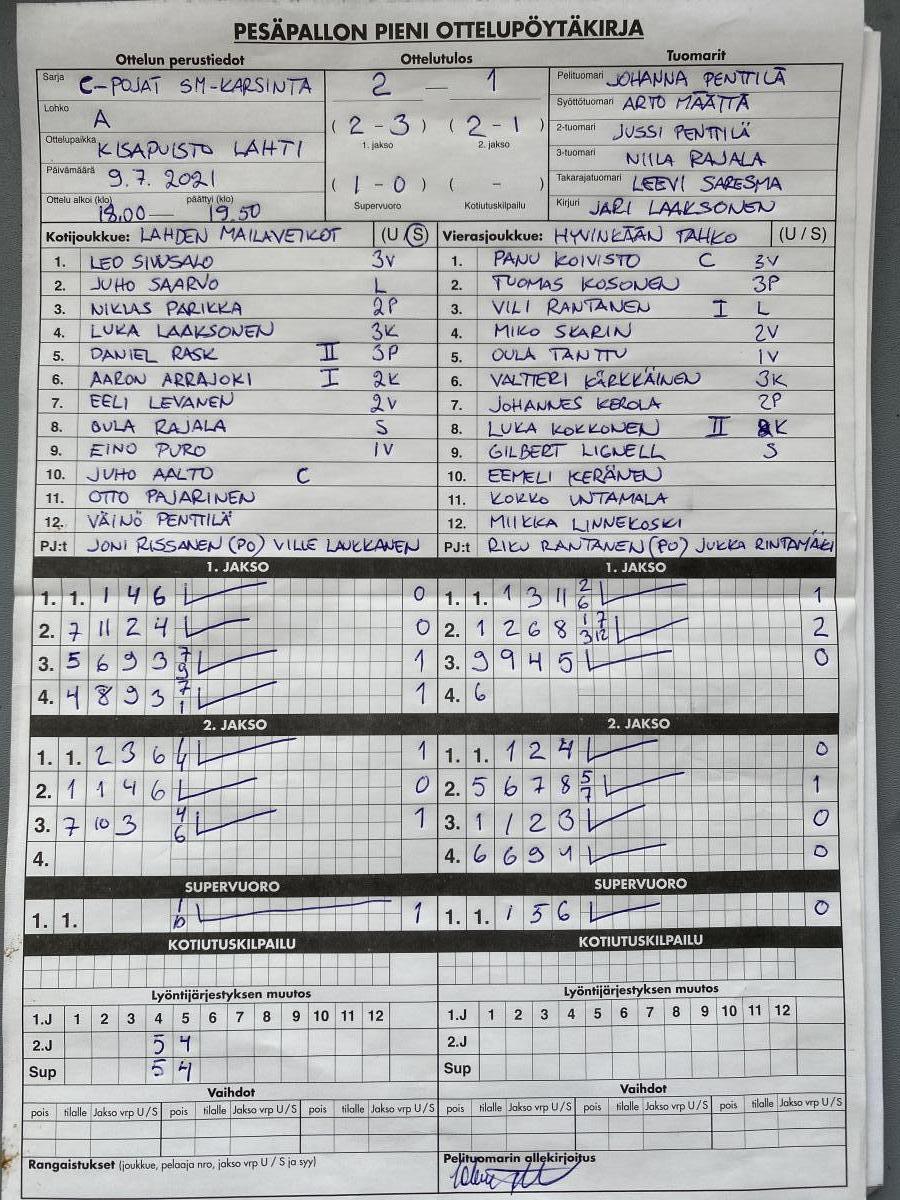 PESÄPALLON PIENI OTTELUPÖYTÄKIRJA
Ottelun perustiedot Ottelutulos Tuomarit
Sarja C-POJAT SM-KARSINTA 2 — 1 Pelituomari JOHANNA PENTTILÄ
Lohko A Syöttötuomari ARTO MÄÄTTÄ
( 2 - 3 ) ( 2 - 1 ) 2-tuomari JUSSI PENTTILÄ
Ottelupaikka KISAPUISTO LAHTI 1. jakso 2. jakso 3-tuomari NIILA RAJALA
Päivämäärä 9.7.2021 ( 1 - 0 ) ( - ) Takarajatuomari LEEVI SARESMA
Ottelu alkoi (klo) 18.00 — päättyi (klo) 19.50 Supervuoro Kotiutuskilpailu Kirjuri JARI LAAKSONEN
Kotijoukkue: LAHDEN MAILAVEIKOT (U / S) Vierasjoukkue: HYVINKÄÄN TAHKO (U / S)
1. LEO SIVUSALO 3V 1. PANU KOIVISTO C 3V
2. JUHO SAARVO L 2. TUOMAS KOSONEN 3P
3. NIKLAS PARIKKA 2P 3. VILI RANTANEN I L
4. LUKA LAAKSONEN 3K 4. MIKO SKARIN 2V
5. DANIEL RASK II 3P 5. OULA TANTTU 1V
6. AARON ARRAJOKI I 2K 6. VALTTERI KÄRKKÄINEN 3K
7. EELI LEVANEN 2V 7. JOHANNES KEROLA 2P
8. OULA RAJALA S 8. LUKA KOKKONEN II 2K
9. EINO PURO 1V 9. GILBERT LIGNELL S
10. JUHO AALTO C 10. EEMELI KERÄNEN
11. OTTO PAJARINEN 11. KOKKO UNTAMALA
12. VÄINÖ PENTTILÄ 12. MIIKKA LINNEKOSKI
PJ:t JONI RISSANEN (PO) VILLE LAUKKANEN PJ:t RIKU RANTANEN (PO) JUKKA RINTAMÄKI
1. JAKSO 1. JAKSO
1. 1. 1 4 6 1 0 1. 1. 1 3 11 2 6 1
2. 7 11 2 4 0 2. 1 2 6 8 1 7 3 12 2
3. 5 6 9 3 7 9 1 3. 9 9 4 5 0
4. 4 8 9 3 7 1 1 4. 6
2. JAKSO 2. JAKSO
1. 1. 2 3 6 4 1 1. 1. 1 2 4 0
2. 1 1 4 6 0 2. 5 6 7 8 5 7 1
3. 7 10 3 4 6 1 3. 1 1 2 3 0
4. 4. 6 6 9 1 0
SUPERVUORO SUPERVUORO
1. 1. 1 10 1 1. 1. 1 5 6 0
KOTIUTUSKILPAILU KOTIUTUSKILPAILU
Lyöntijärjestyksen muutos Lyöntijärjestyksen muutos
1.J 1 2 3 4 5 6 7 8 9 10 11 12 1.J 1 2 3 4 5 6 7 8 9 10 11 12
2.J 5 4 2.J
Sup 5 4 Sup
Vaihdot Vaihdot
pois tilalle Jakso vrp U/S pois tilalle Jakso vrp U/S pois tilalle Jakso vrp U/S pois tilalle Jakso vrp U/S pois tilalle Jakso vrp U/S pois tilalle Jakso vrp U/S
Rangaistukset (joukkue, pelaaja nro, jakso vrp U / S ja syy) Pelituomarin allekirjoitus